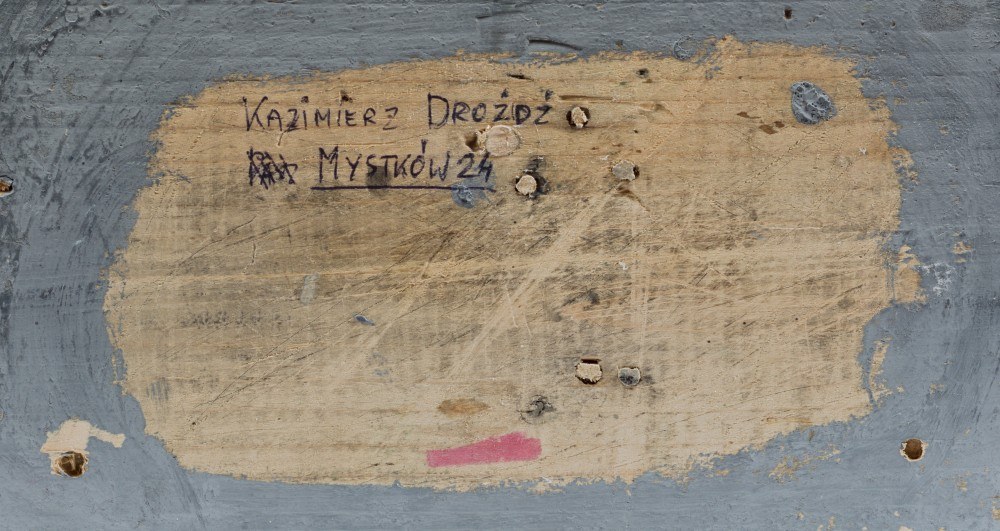 KAZIMIERZ DROŻDŻ
MYSTKÓW 24